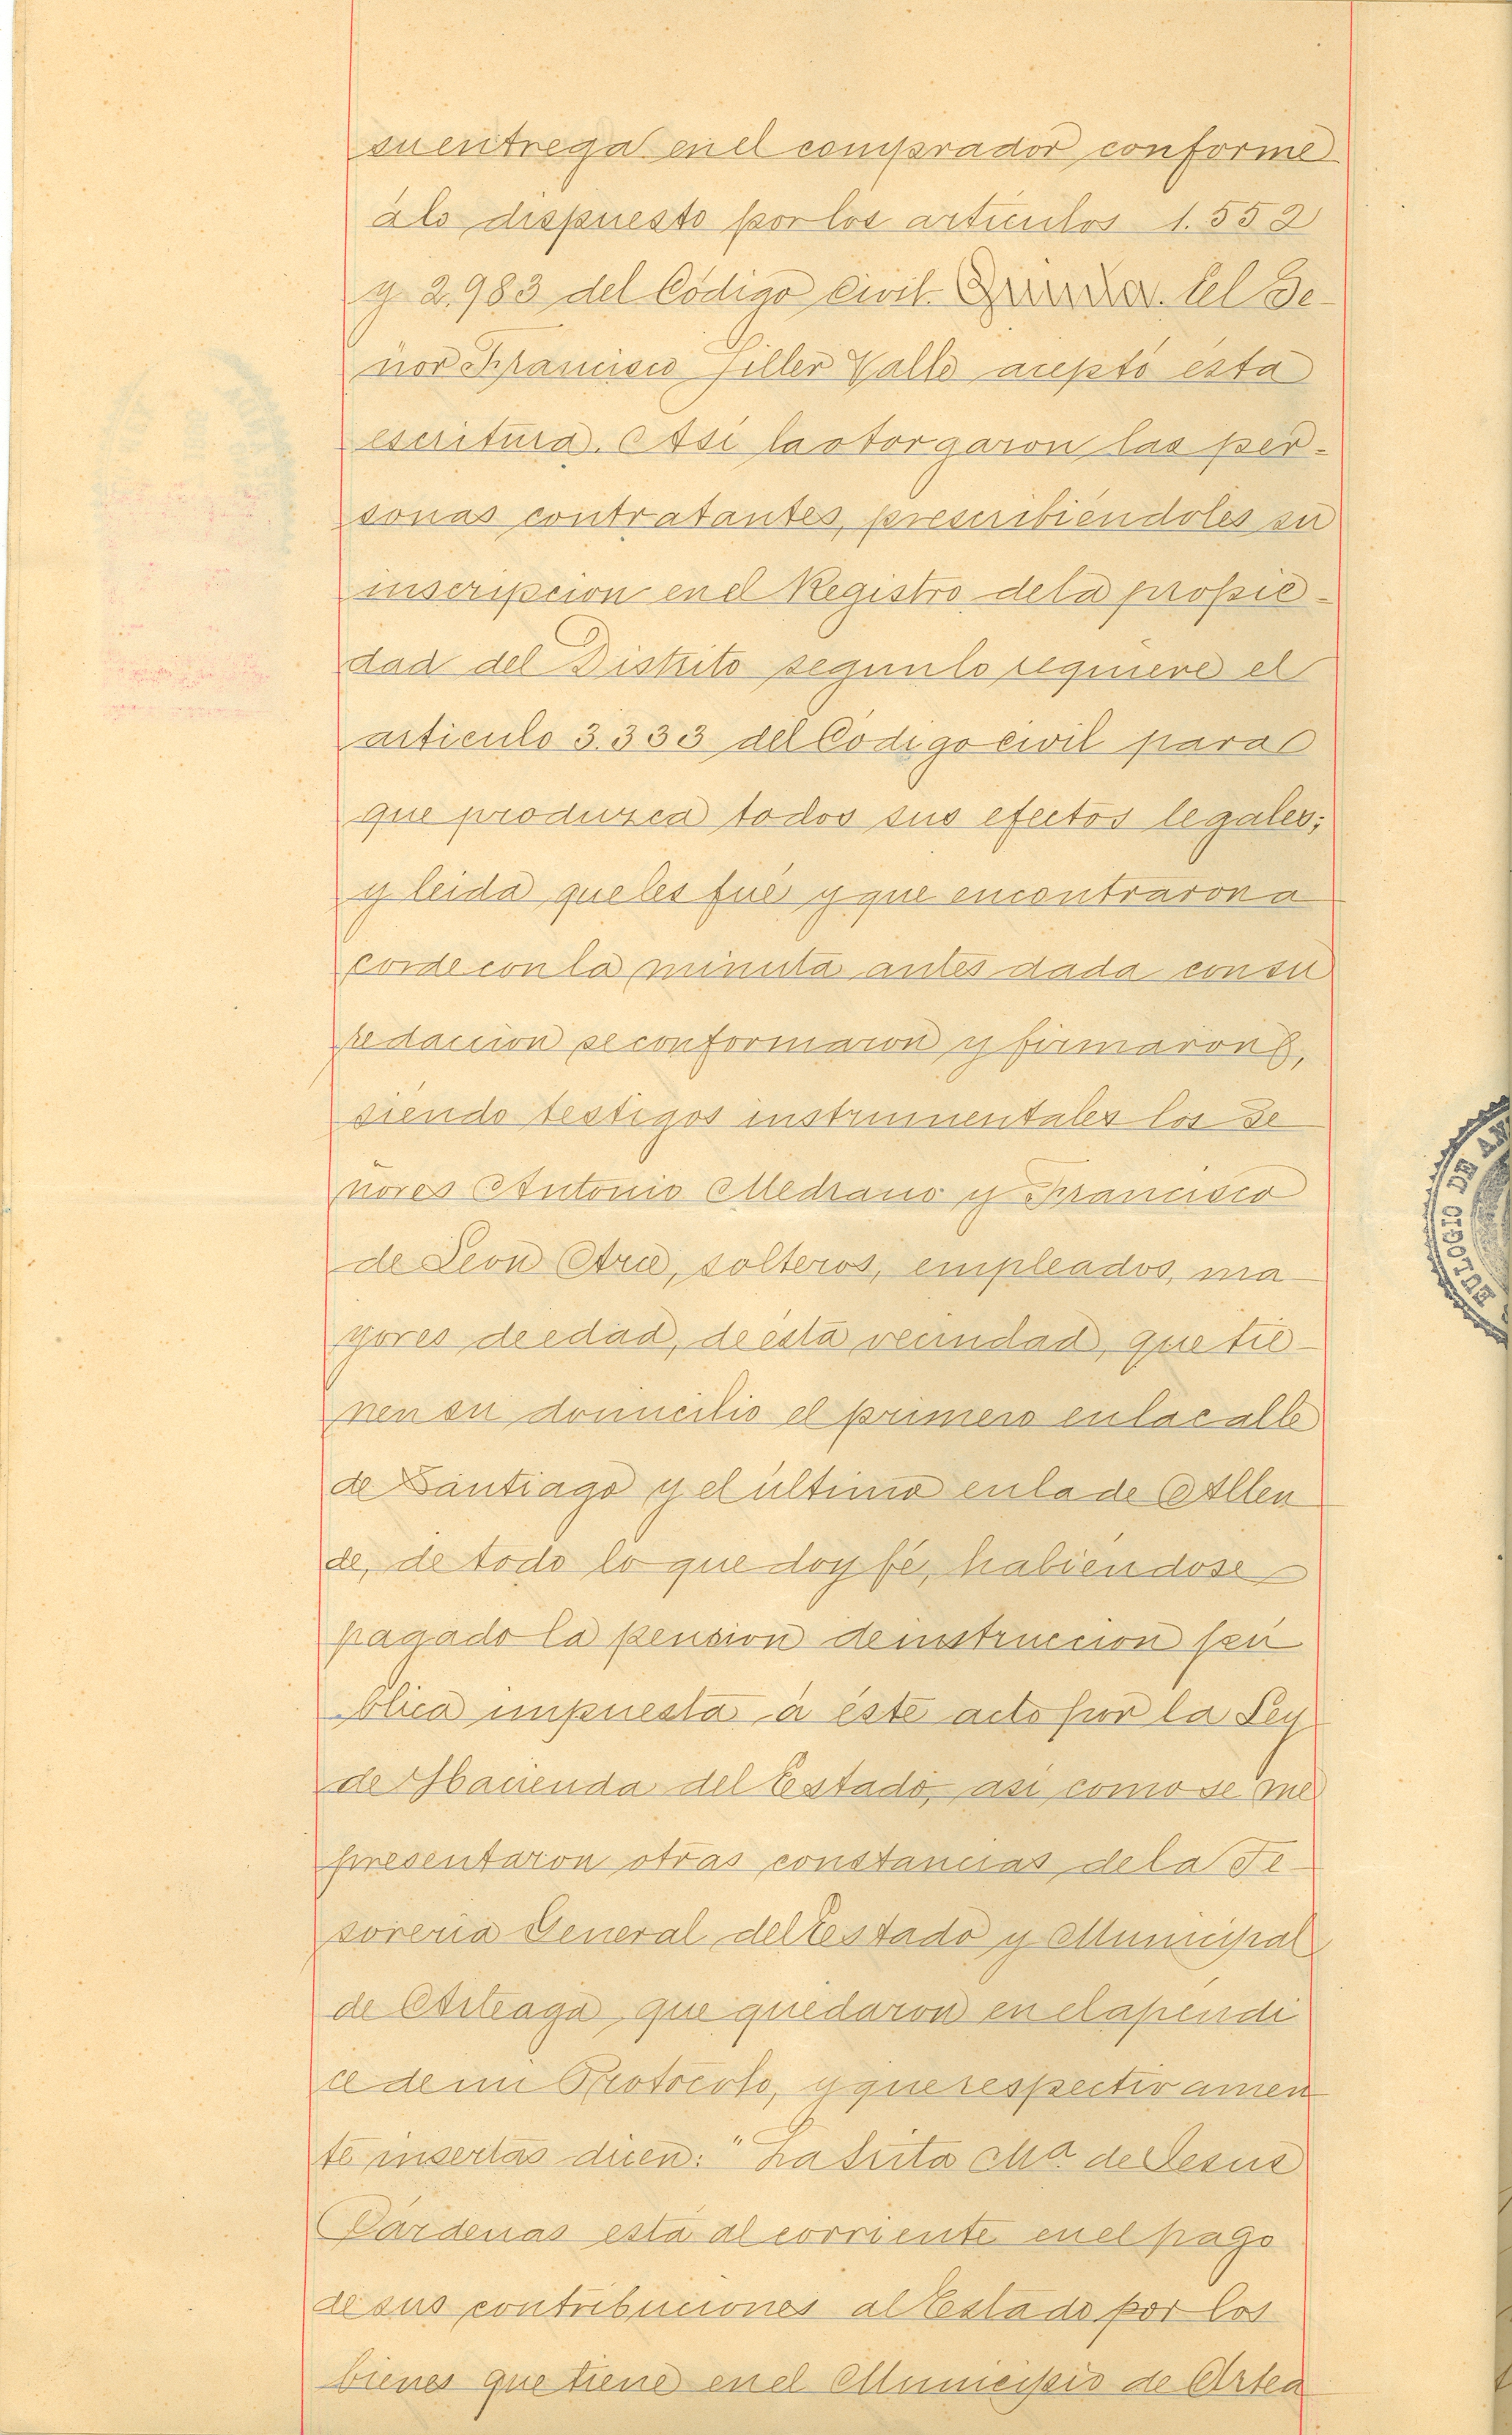 su entrega en el comprador conforme
à lo dispuesto por los articulos 1.552
y 2,983 del Código Civil. Quinta. El Se-
ñor Francisco Siller Valle aceptó esta
escritura. Asi la otorgaron las per-
sonas contratantes, prescribiéndoles su
inscripcion en el Registro de la propie-
dad del Distrito segun lo requiere el
articulo 3.333 del Codigo civil para
que produzca todos sus efectos legales;
y leida que les fué y que encontraron a
corde con la minuta antes dada con su
redaccion se conformaron y firmaron,
siendo testigos instrumentales los Se
ñores Antonio Medrano y Francisco
de Leon Arce, solteros, empleados, ma
yores de edad, de esta vecindad, que tie-
nen su domicilio el primero en la calle
de Santiago y el ultimo en la de Allen
de, de todo lo que doy fé, habiendose
pagado la pension de instruccion pú
blica impuesta à éste acto por la Ley
de Hacienda del Estado, asi como se me
presentaron otras constancias de la Te-
soreria General del Estado y Municipal
de Arteaga que quedaron en el apéndi
ce de mi Protocolo, y que respectivamen
te insertas dicen: "La Srita Ma. de Jesus
Cárdenas está al corriente en el pago
de sus contribuciones al Estado por los
bienes que tiene en el Municipio de Artea